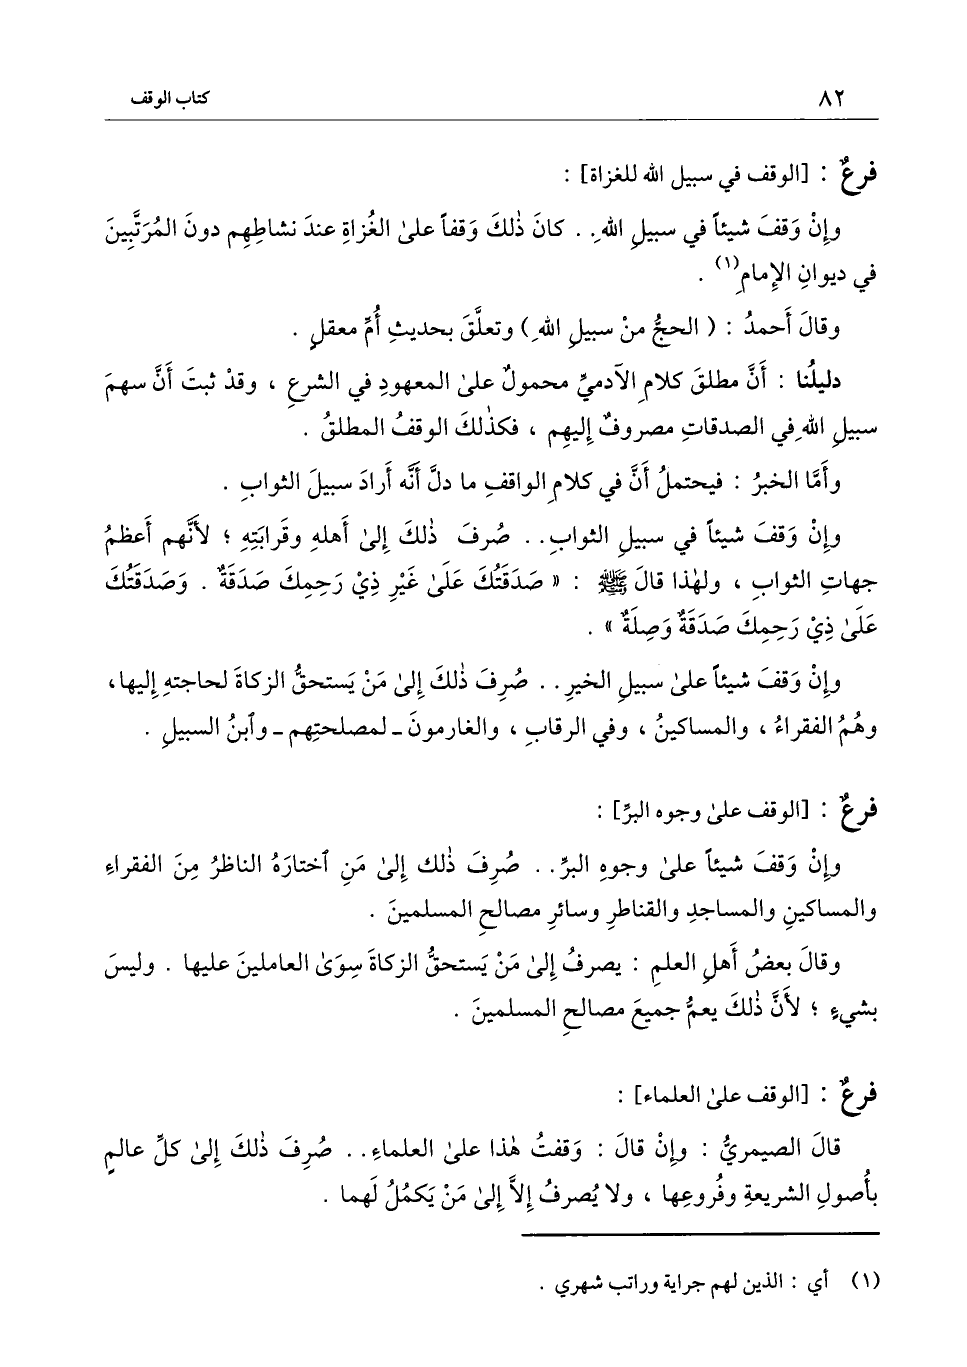 ٨٢ كتاب الوقف
فرعٌ : [الوقف في سبيل الله للغزاة] :
وإنْ وَقفَ شيئاً في سبيلِ اللهِ . . كانَ ذٰلكَ وَقفاً علىٰ الغُزاةِ عندَ نشاطِهِم دونَ المُرَتَّبينَ
في ديوانِ الإمامِ(١) .
وقالَ أَحمدُ : ( الحجُّ منْ سبيلِ اللهِ ) وتعلَّقَ بحديثِ أُمِّ معقلٍ .
دليلُنا : أَنَّ مطلقَ كلامِ الآدميِّ محمولٌ علىٰ المعهودِ في الشرعِ ، وقدْ ثبتَ أَنَّ سهمَ
سبيلِ اللهِ في الصدقاتِ مصروفٌ إليهِم ، فكذٰلكَ الوقفُ المطلقُ .
وأَمَّا الخبرُ : فيحتملُ أَنَّ في كلامِ الواقفِ ما دلَّ أَنَّه أَرادَ سبيلَ الثوابِ .
وإنْ وَقفَ شيئاً في سبيلِ الثوابِ . . صُرفَ ذٰلكَ إلىٰ أَهلهِ وقَرابَتِهِ ؛ لأَنَّهم أَعظمُ
جهاتِ الثوابِ ، ولهٰذا قالَ ﷺ : « صَدَقَتُكَ عَلَىٰ غَيْرِ ذِيْ رَحِمِكَ صَدَقَةٌ . وَصَدَقَتُكَ
عَلَىٰ ذِيْ رَحِمِكَ صَدَقَةٌ وَصِلَةٌ » .
وإنْ وَقفَ شيئاً علىٰ سبيلِ الخيرِ . . صُرِفَ ذٰلكَ إلىٰ مَنْ يَستحقُّ الزكاةَ لحاجتهِ إليها،
وهُمُ الفقراءُ ، والمساكينُ ، وفي الرقابِ ، والغارمونَ ـ لمصلحتِهم ـ وٱبنُ السبيلِ .
فرعٌ : [الوقف علىٰ وجوه البرِّ] :
وإنْ وَقفَ شيئاً علىٰ وجوهِ البرِّ . . صُرِفَ ذٰلك إلىٰ مَنِ ٱختارَهُ الناظرُ مِنَ الفقراءِ
والمساكينِ والمساجدِ والقناطرِ وسائرِ مصالحِ المسلمينَ .
وقالَ بعضُ أَهلِ العلمِ : يصرفُ إلىٰ مَنْ يَستحقُّ الزكاةَ سِوَىٰ العاملينَ عليها . وليسَ
بشيءٍ ؛ لأَنَّ ذٰلكَ يعمُّ جميعَ مصالحِ المسلمينَ .
فرعٌ : [الوقف علىٰ العلماء] :
قالَ الصيمريُّ : وإنْ قالَ : وَقفتُ هٰذا علىٰ العلماءِ . . صُرِفَ ذٰلكَ إلىٰ كلِّ عالمٍ
بأُصولِ الشريعةِ وفُروعِها ، ولا يُصرفُ إلاَّ إلىٰ مَنْ يَكمُلُ لَهما .
(١) أي : الذين لهم جراية وراتب شهري .